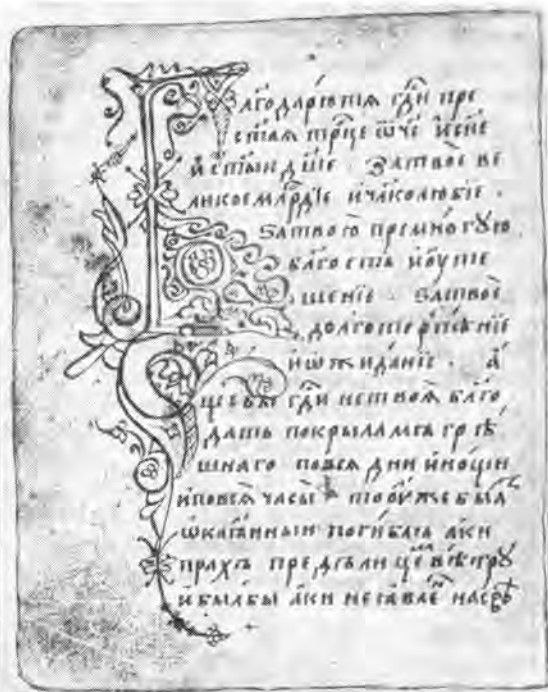 Благодарѣнїѧ гд҃и пре
ст҃аѧ тр҃це ѿч҃е и҆ сн҃е
и҆ ст҃ыи дш҃е . За твое ве
ликое млр҃дїе и҆ чл҃колюбїе .
Ѕа твою премногꙋю
бл҃гость и҆ оутѣ
шенїе . Ѕа твое
долготерпѣнїе
и҆ ѡжиданїе . а҆
ще бы гд҃и не твоѧ бл҃го
дать покрыла мѧ грѣ
шнаго по всѧ дни и҆ нощи
и҆ по всѧ часы то оуже бых
ѡкаѧнныи погибъ а҆ки
прахъ предъ лицемъ вѣтрꙋ
и҆ былъ бы а҆ки не